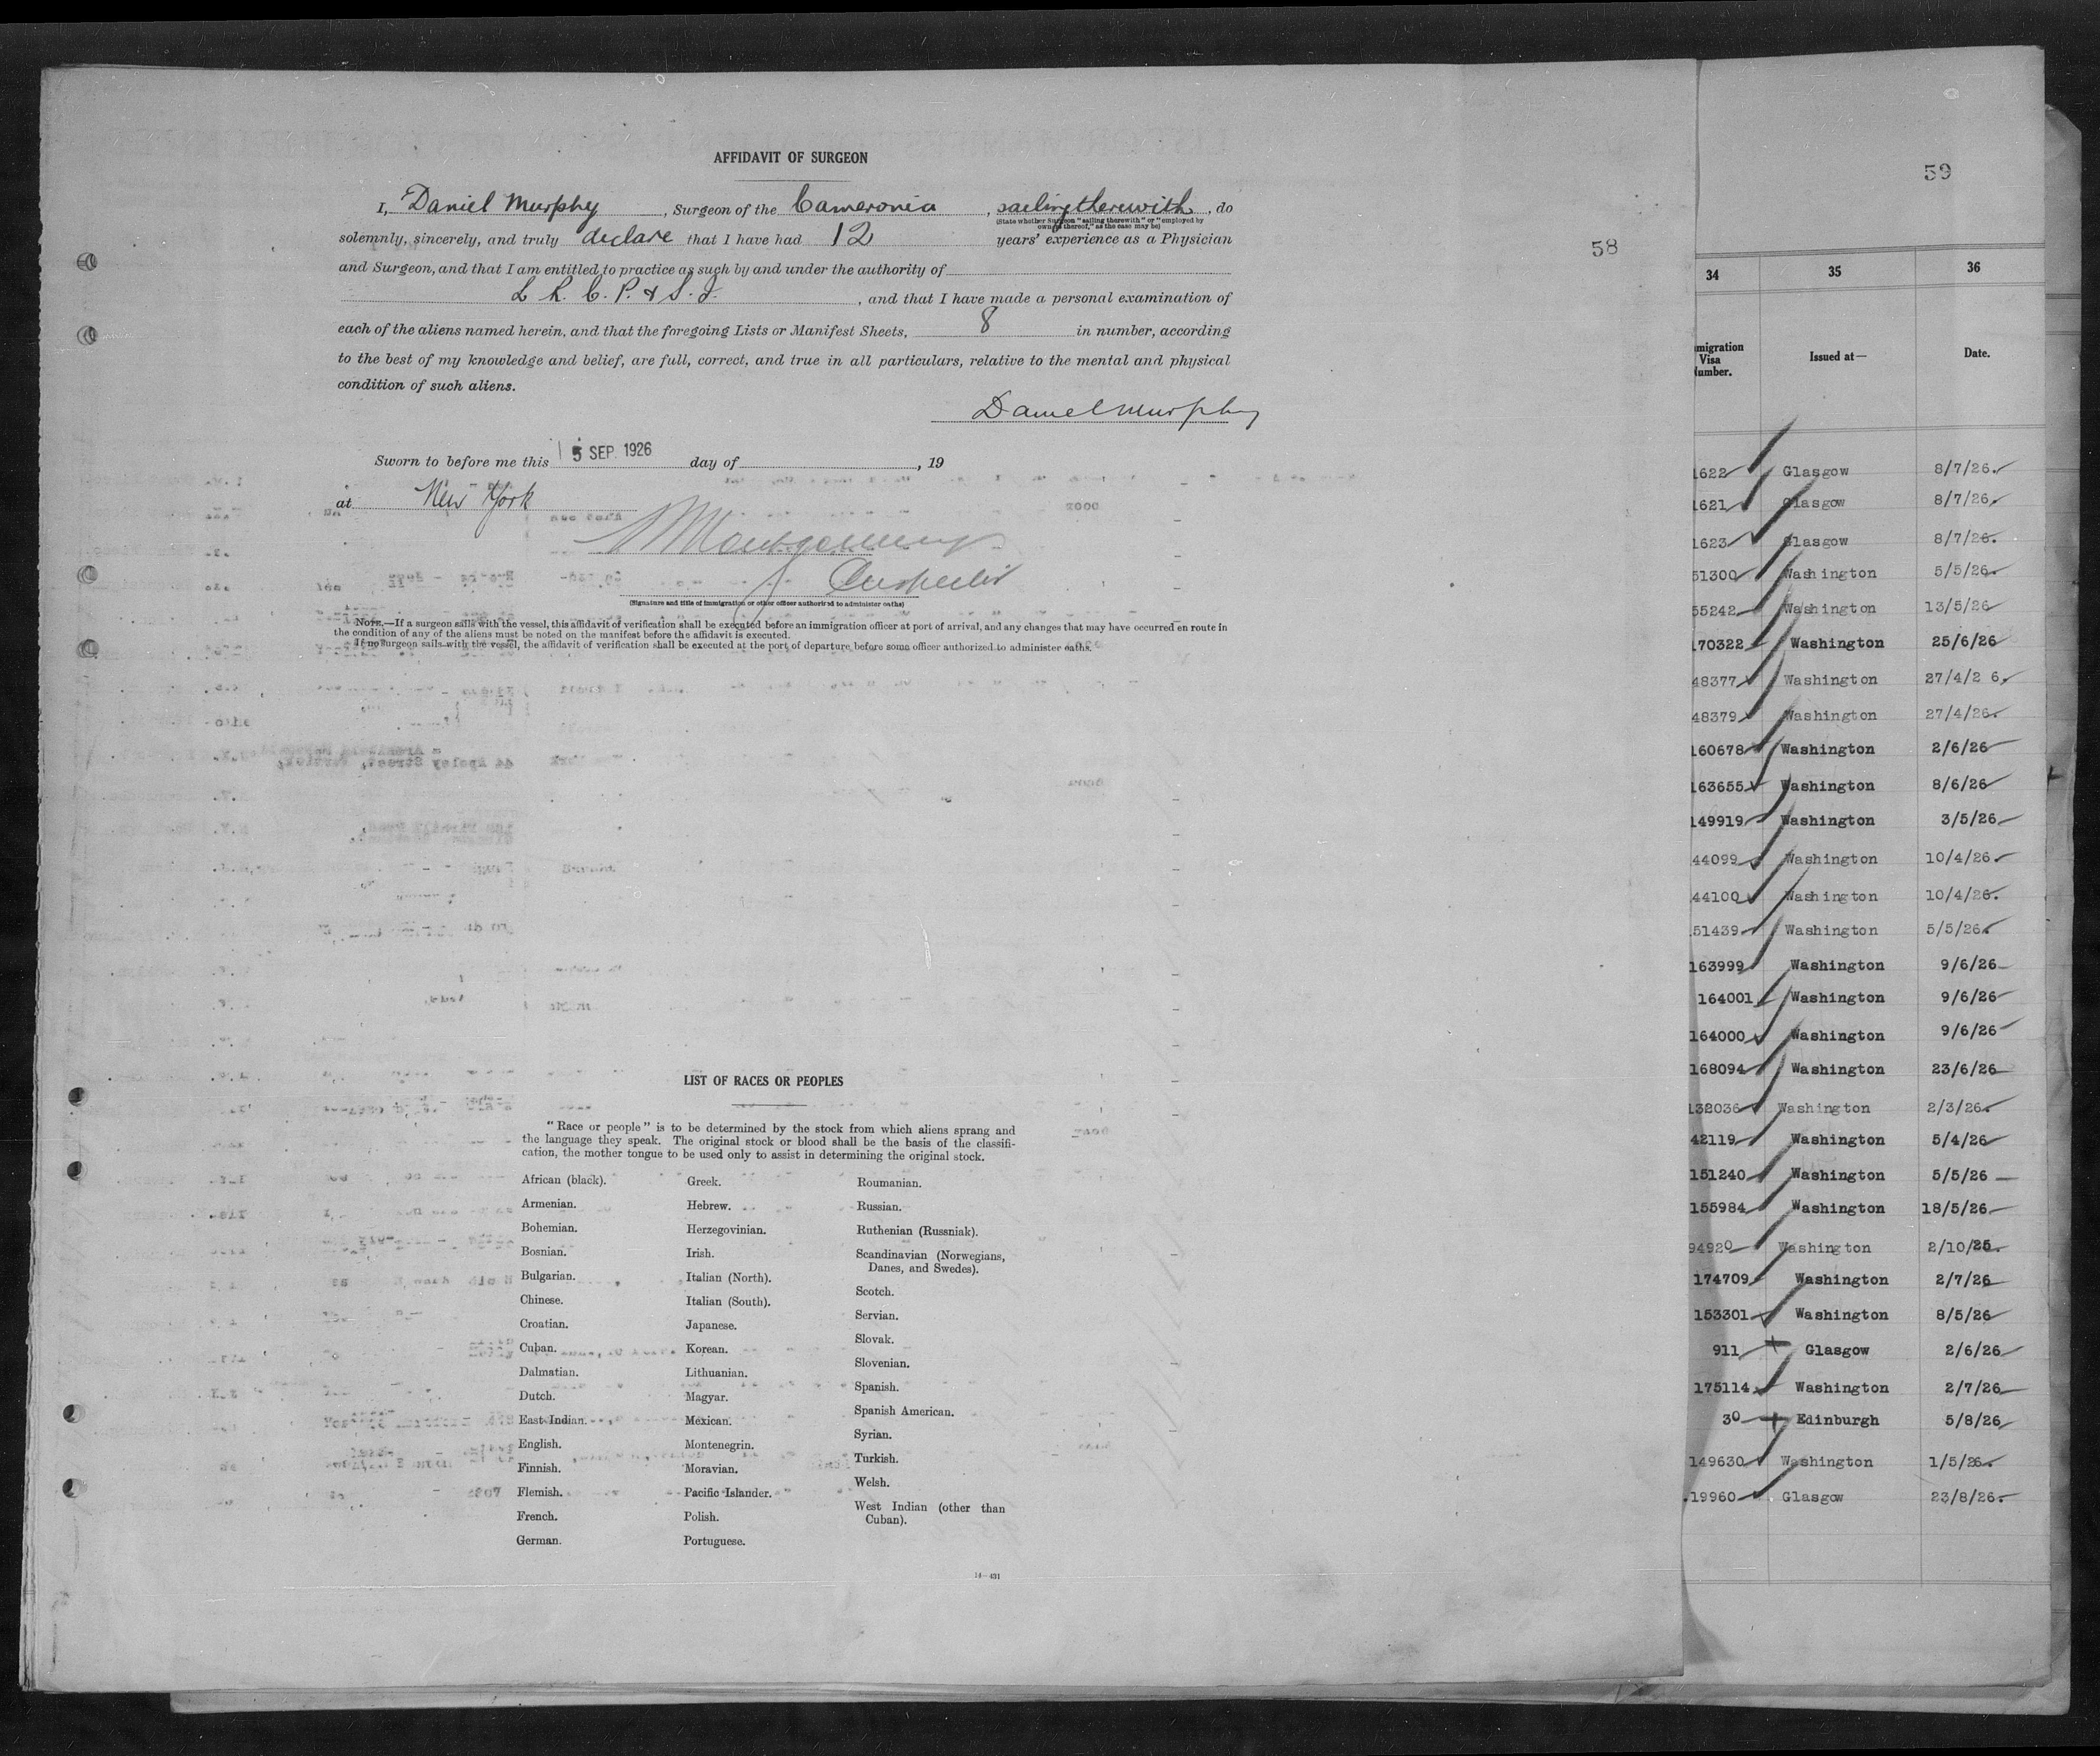 AFFIDAVIT OF SURGEON
I, Daniel Murphy, Surgeon of the Cameronia, sailing therewith, do
(State whether Surgeon "sailing therewith" or "employed by
owners thereof," as the case may be)
solemnly, sincerely, and truly declare that I have had 12 years' experience as a Physician
and Surgeon, and that I am entitled to practice as such by and under the authority of
L R. C. P. & S. I., and that I have made a personal examination of
each of the aliens named herein, and that the foregoing Lists or Manifest Sheets, 8 in number, according
to the best of my knowledge and belief, are full, correct, and true in all particulars, relative to the mental and physical
condition of such aliens.
Daniel Murphy
Sworn to before me this 5 SEP. 1926 day of , 19
at New York
Montgomery
Inspector
(Signature and title of immigration or other officer authorized to administer oaths)
NOTE.—If a surgeon sails with the vessel, this affidavit of verification shall be executed before an immigration officer at port of arrival, and any changes that may have occurred en route in
the condition of any of the aliens must be noted on the manifest before the affidavit is executed.
If no surgeon sails with the vessel, the affidavit of verification shall be executed at the port of departure before some officer authorized to administer oaths.
LIST OF RACES OR PEOPLES
"Race or people" is to be determined by the stock from which aliens sprang and
the language they speak. The original stock or blood shall be the basis of the classifi-
cation, the mother tongue to be used only to assist in determining the original stock.
African (black).
Armenian.
Bohemian.
Bosnian.
Bulgarian.
Chinese.
Croatian.
Cuban.
Dalmatian.
Dutch.
East Indian.
English.
Finnish.
Flemish.
French.
German.
Greek.
Hebrew.
Herzegovinian.
Irish.
Italian (North).
Italian (South).
Japanese.
Korean.
Lithuanian.
Magyar.
Mexican.
Montenegrin.
Moravian.
Pacific Islander.
Polish.
Portuguese.
Roumanian.
Russian.
Ruthenian (Russniak).
Scandinavian (Norwegians,
Danes, and Swedes).
Scotch.
Servian.
Slovak.
Slovenian.
Spanish.
Spanish American.
Syrian.
Turkish.
Welsh.
West Indian (other than
Cuban).
14—431
58
59
34 35 36
migration
Visa
umber.
Issued at—
Date.
1622 Glasgow 8/7/26.
1621 Glasgow 8/7/26.
1623 Glasgow 8/7/26.
51300 Washington 5/5/26.
55242 Washington 13/5/26
170322 Washington 25/6/26
48377 Washington 27/4/2 6.
48379 Washington 27/4/26.
160678 Washington 2/6/26
163655 Washington 8/6/26
149919 Washington 3/5/26
44099 Washington 10/4/26.
44100 Washington 10/4/26.
51439 Washington 5/5/26.
163999 Washington 9/6/26
164001 Washington 9/6/26
164000 Washington 9/6/26
168094 Washington 23/6/26
132036 Washington 2/3/26.
42119 Washington 5/4/26
151240 Washington 5/5/26
155984 Washington 18/5/26
94920 Washington 2/10/25.
174709 Washington 2/7/26
153301 Washington 8/5/26
911 Glasgow 2/6/26
175114 Washington 2/7/26
30 Edinburgh 5/8/26
149630 Washington 1/5/26.
19960 Glasgow 23/8/26.